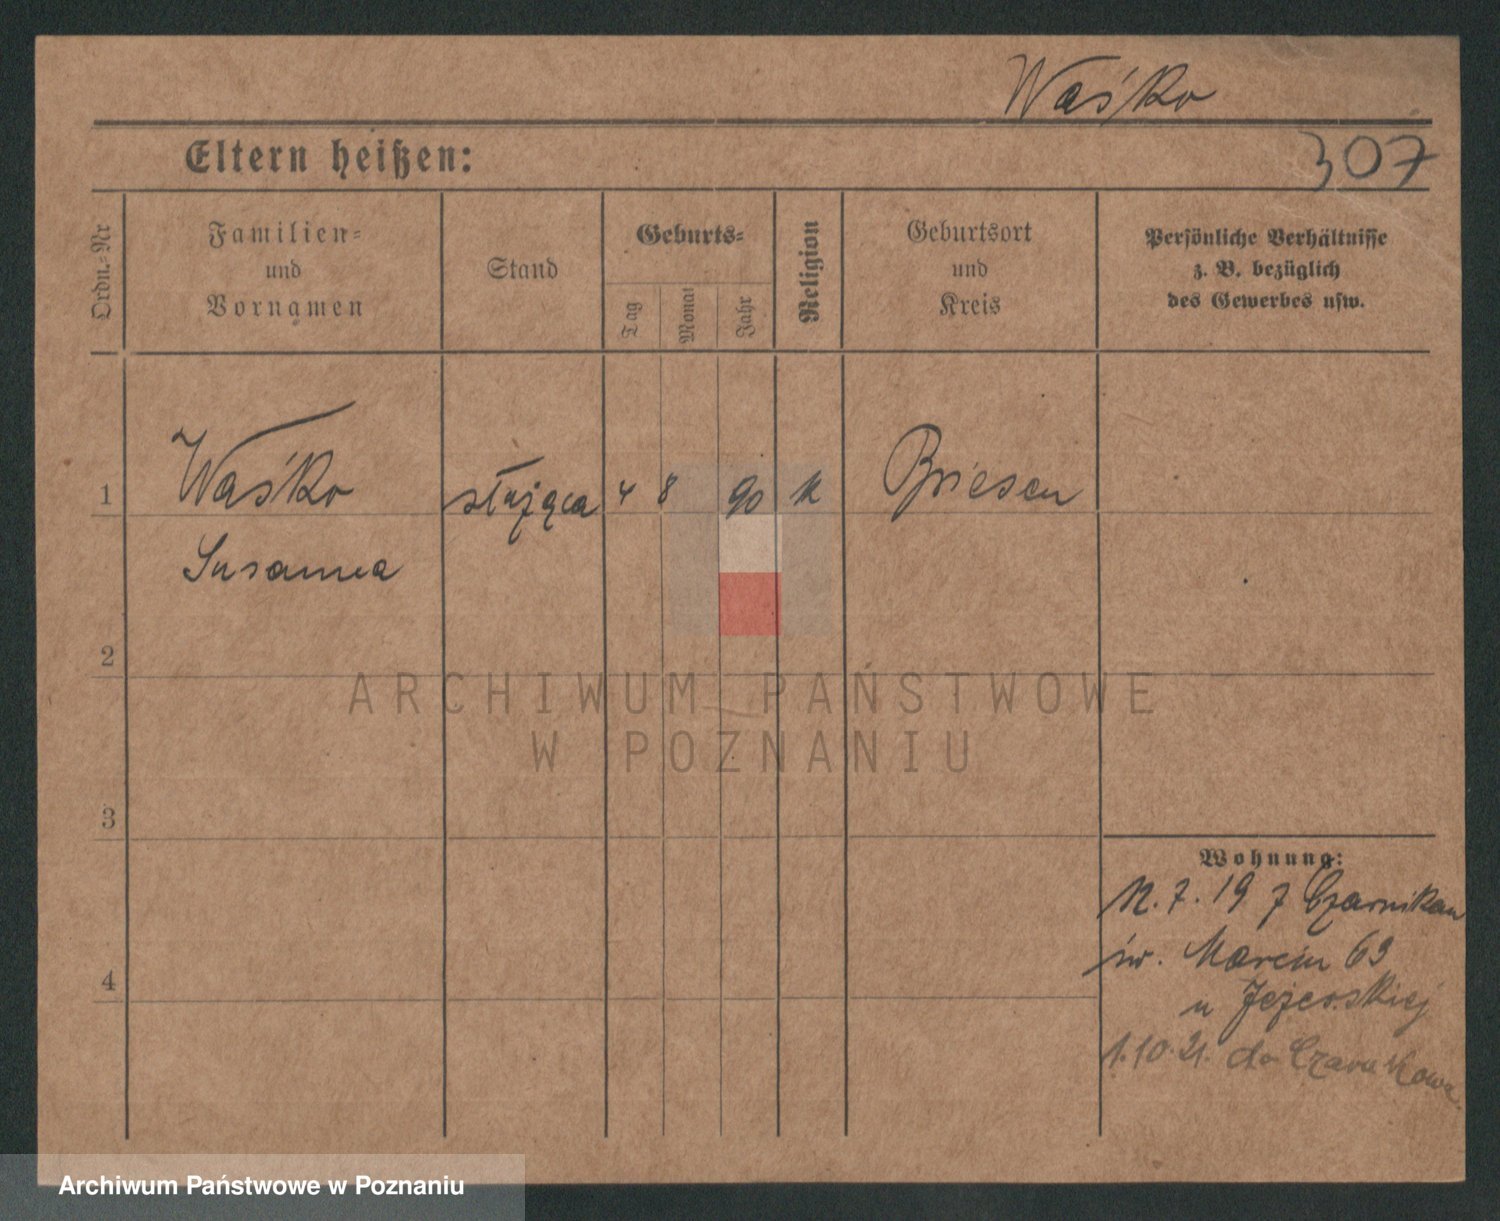 Waśko
Eltern heißen:
307
Ordn.-Nr
Familien-
und
Vornamen
Stand
Geburts-
Tag
Monat
Jahr
Religion
Geburtsort
und
Kreis
Persönliche Verhältnisse
z. B. bezüglich
des Gewerbes usw.
1
Waśko
służąca
4
8
90
k
Briesen
Susanna
2
ARCHIWUM PAŃSTWOWE
W POZNANIU
3
Wohnung:
12. 7. 19 z Czarnikau
św. Marcin 63
u Jeżewskiej
4
1.10.21. do Czarnkowa
Archiwum Państwowe w Poznaniu